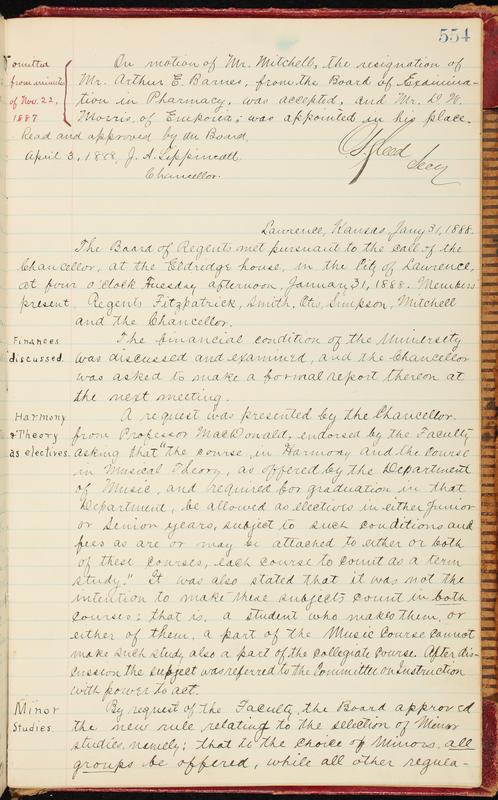 554
omitted
from minutes
of Nov. 22,
1887
On motion of Mr. Mitchell, the resignation of
Mr. Arthur E. Barnes, from the Board of Examina-
tion in Pharmacy, was accepted, and Mr. D. W.
Morris, of Emporia, was appointed in his place.
Read and approved by the Board,
April 3, 1888, J. A. Lippincott,
Chancellor.
Reed
Secy
Lawrence, Kansas, Jany 31, 1888.
The Board of Regents met pursuant to the call of the
Chancellor, at the Eldridge house, in the City of Lawrence,
at four o'clock Tuesday afternoon, January 31, 1888. Members
present, Regents Fitzpatrick, Smith, Otis, Simpson, Mitchell
and the Chancellor.
Finances
discussed.
The financial condition of the University
was discussed and examined, and the Chancellor
was asked to make a formal report thereon at
the next meeting.
Harmony
& Theory
as electives.
A request was presented by the Chancellor
from Professor MacDonald, endorsed by the Faculty
asking that the course, in Harmony and the Course
in Musical Theory, as offered by the Department
of Music, and required for graduation in that
Department, be allowed as electives in either Junior
or Senior years, subject to such conditions and
fees as are or may be attached to either or both
of these courses, each course to count as a term
study." It was also stated that it was not the
intention to make these subjects count in both
courses; that is, a student who makes them, or
either of them, a part of the Music Course cannot
make such study also a part of the collegiate course. After dis-
cussion the subject was referred to the Committee on Instruction
with power to act.
Minor
Studies.
By request of the Faculty, the Board approved
the new rule relating to the selection of Minor
studies, namely; that to the choice of Minors, all
groups be offered, while all other regula-